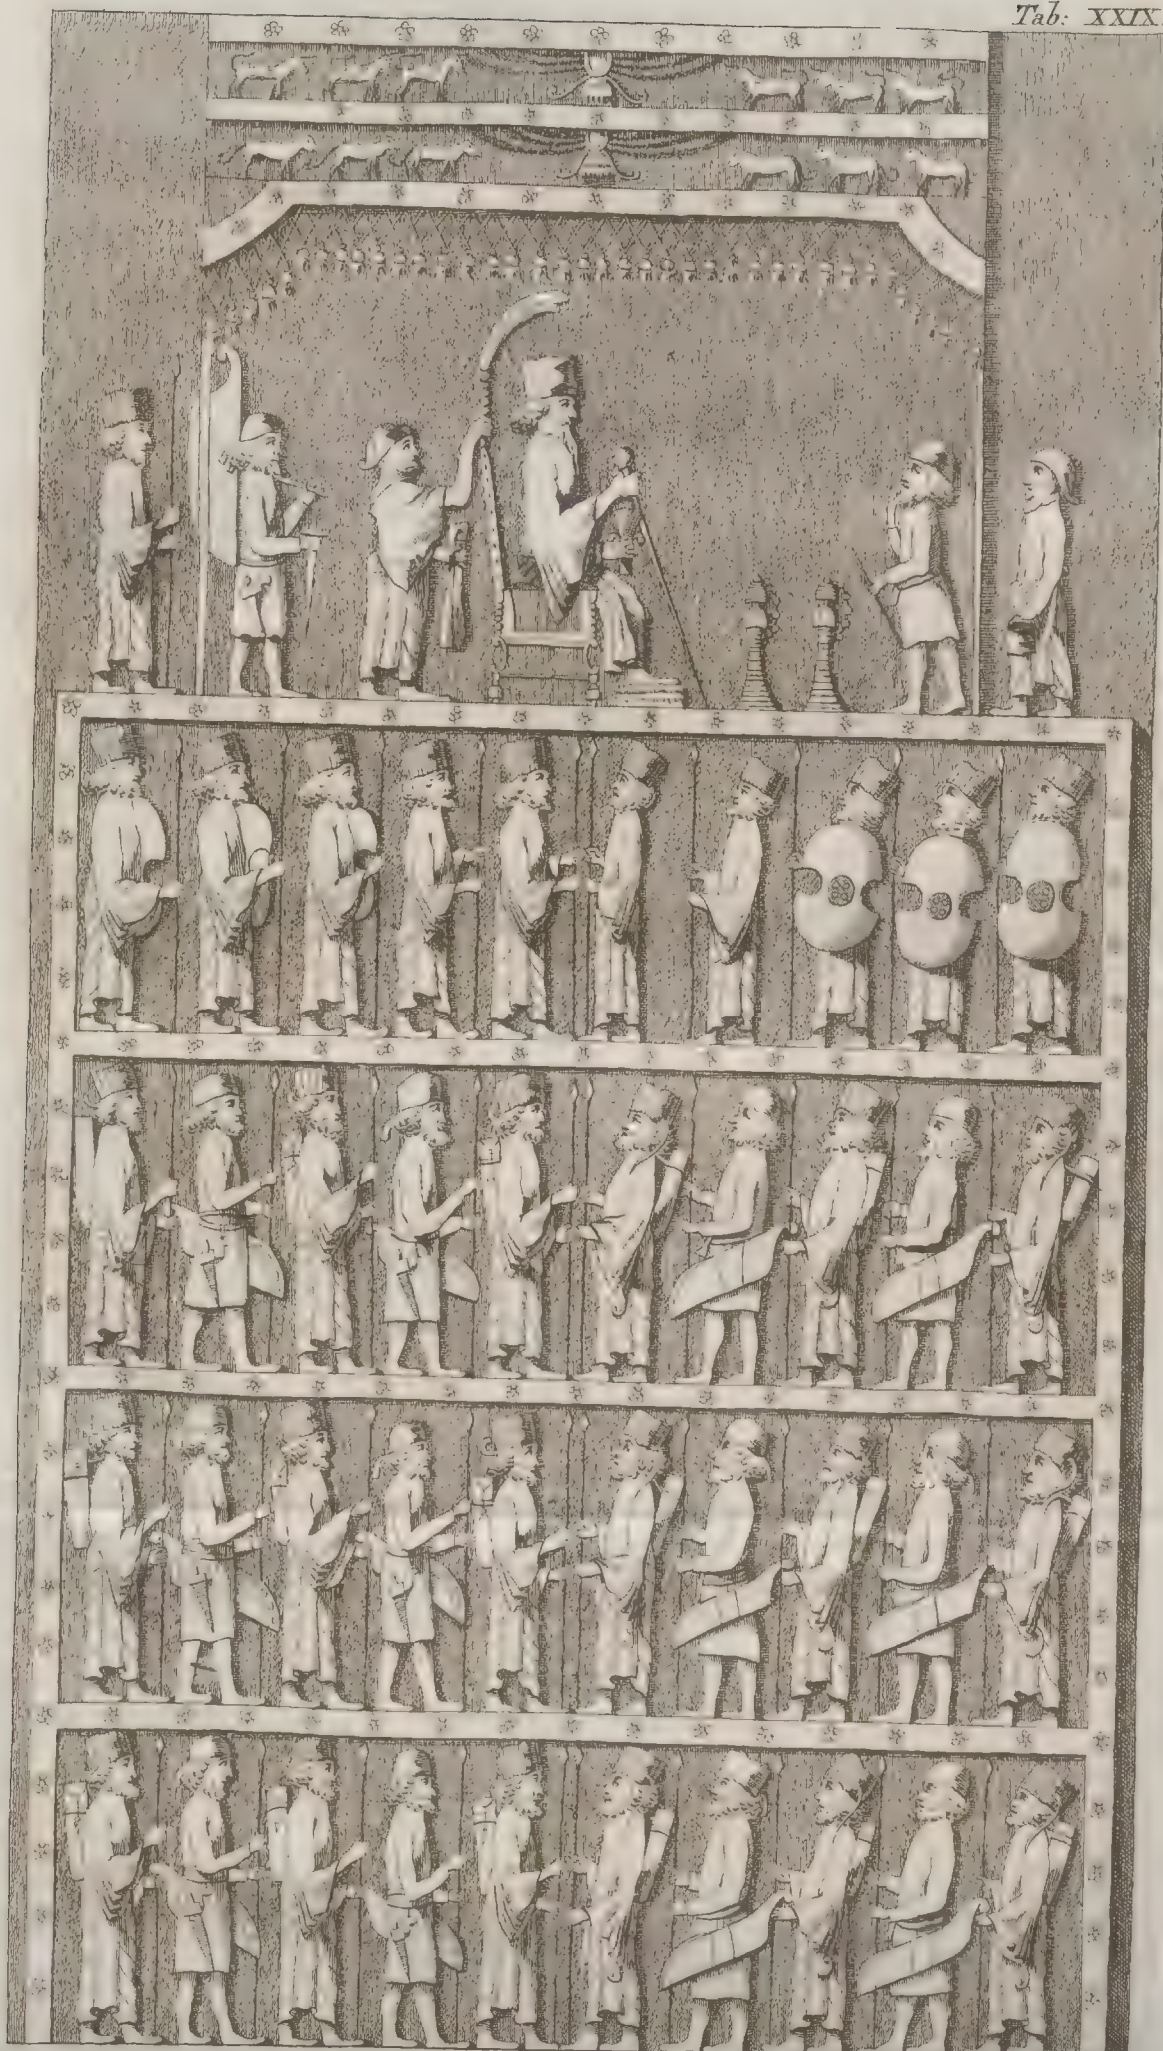 Tab: XXIX